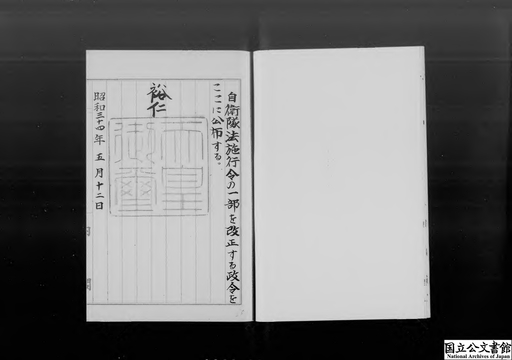 自衛隊法施行令の一部を改正する政令を
ここに公布する。
裕仁
天皇
御璽
昭和三十四年 五月十二日
国立公文書館
National Archives of Japan